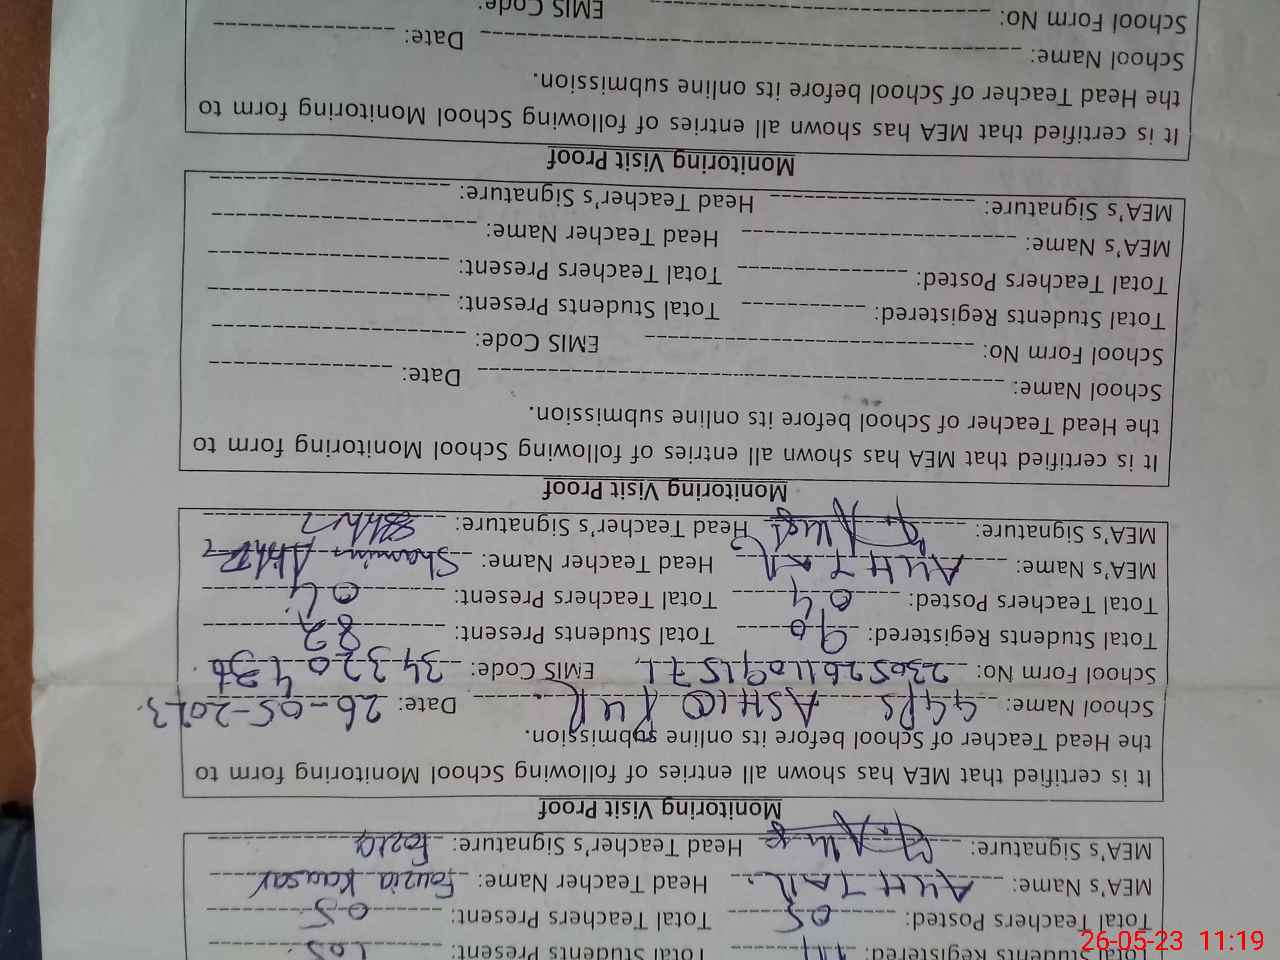 Total Students Registered: Total Students Present:
Total Teachers Posted: 05 Total Teachers Present: 05
MEA's Name: Head Teacher Name: Fouzia Kausar
MEA's Signature: Head Teacher's Signature: Fozia
Monitoring Visit Proof
It is certified that MEA has shown all entries of following School Monitoring form to
the Head Teacher of School before its online submission.
School Name: GGPS ASHIQ PUR. Date: 26-05-2023.
School Form No: EMIS Code:
Total Students Registered: 90 Total Students Present: 82
Total Teachers Posted: 04 Total Teachers Present: 04
MEA's Name: Head Teacher Name: Shamim Akhtar
MEA's Signature: Head Teacher's Signature:
Monitoring Visit Proof
It is certified that MEA has shown all entries of following School Monitoring form to
the Head Teacher of School before its online submission.
School Name: Date:
School Form No: EMIS Code:
Total Students Registered: Total Students Present:
Total Teachers Posted: Total Teachers Present:
MEA's Name: Head Teacher Name:
MEA's Signature: Head Teacher's Signature:
Monitoring Visit Proof
It is certified that MEA has shown all entries of following School Monitoring form to
the Head Teacher of School before its online submission.
School Name: Date:
School Form No: EMIS Code:
26-05-23 11:19